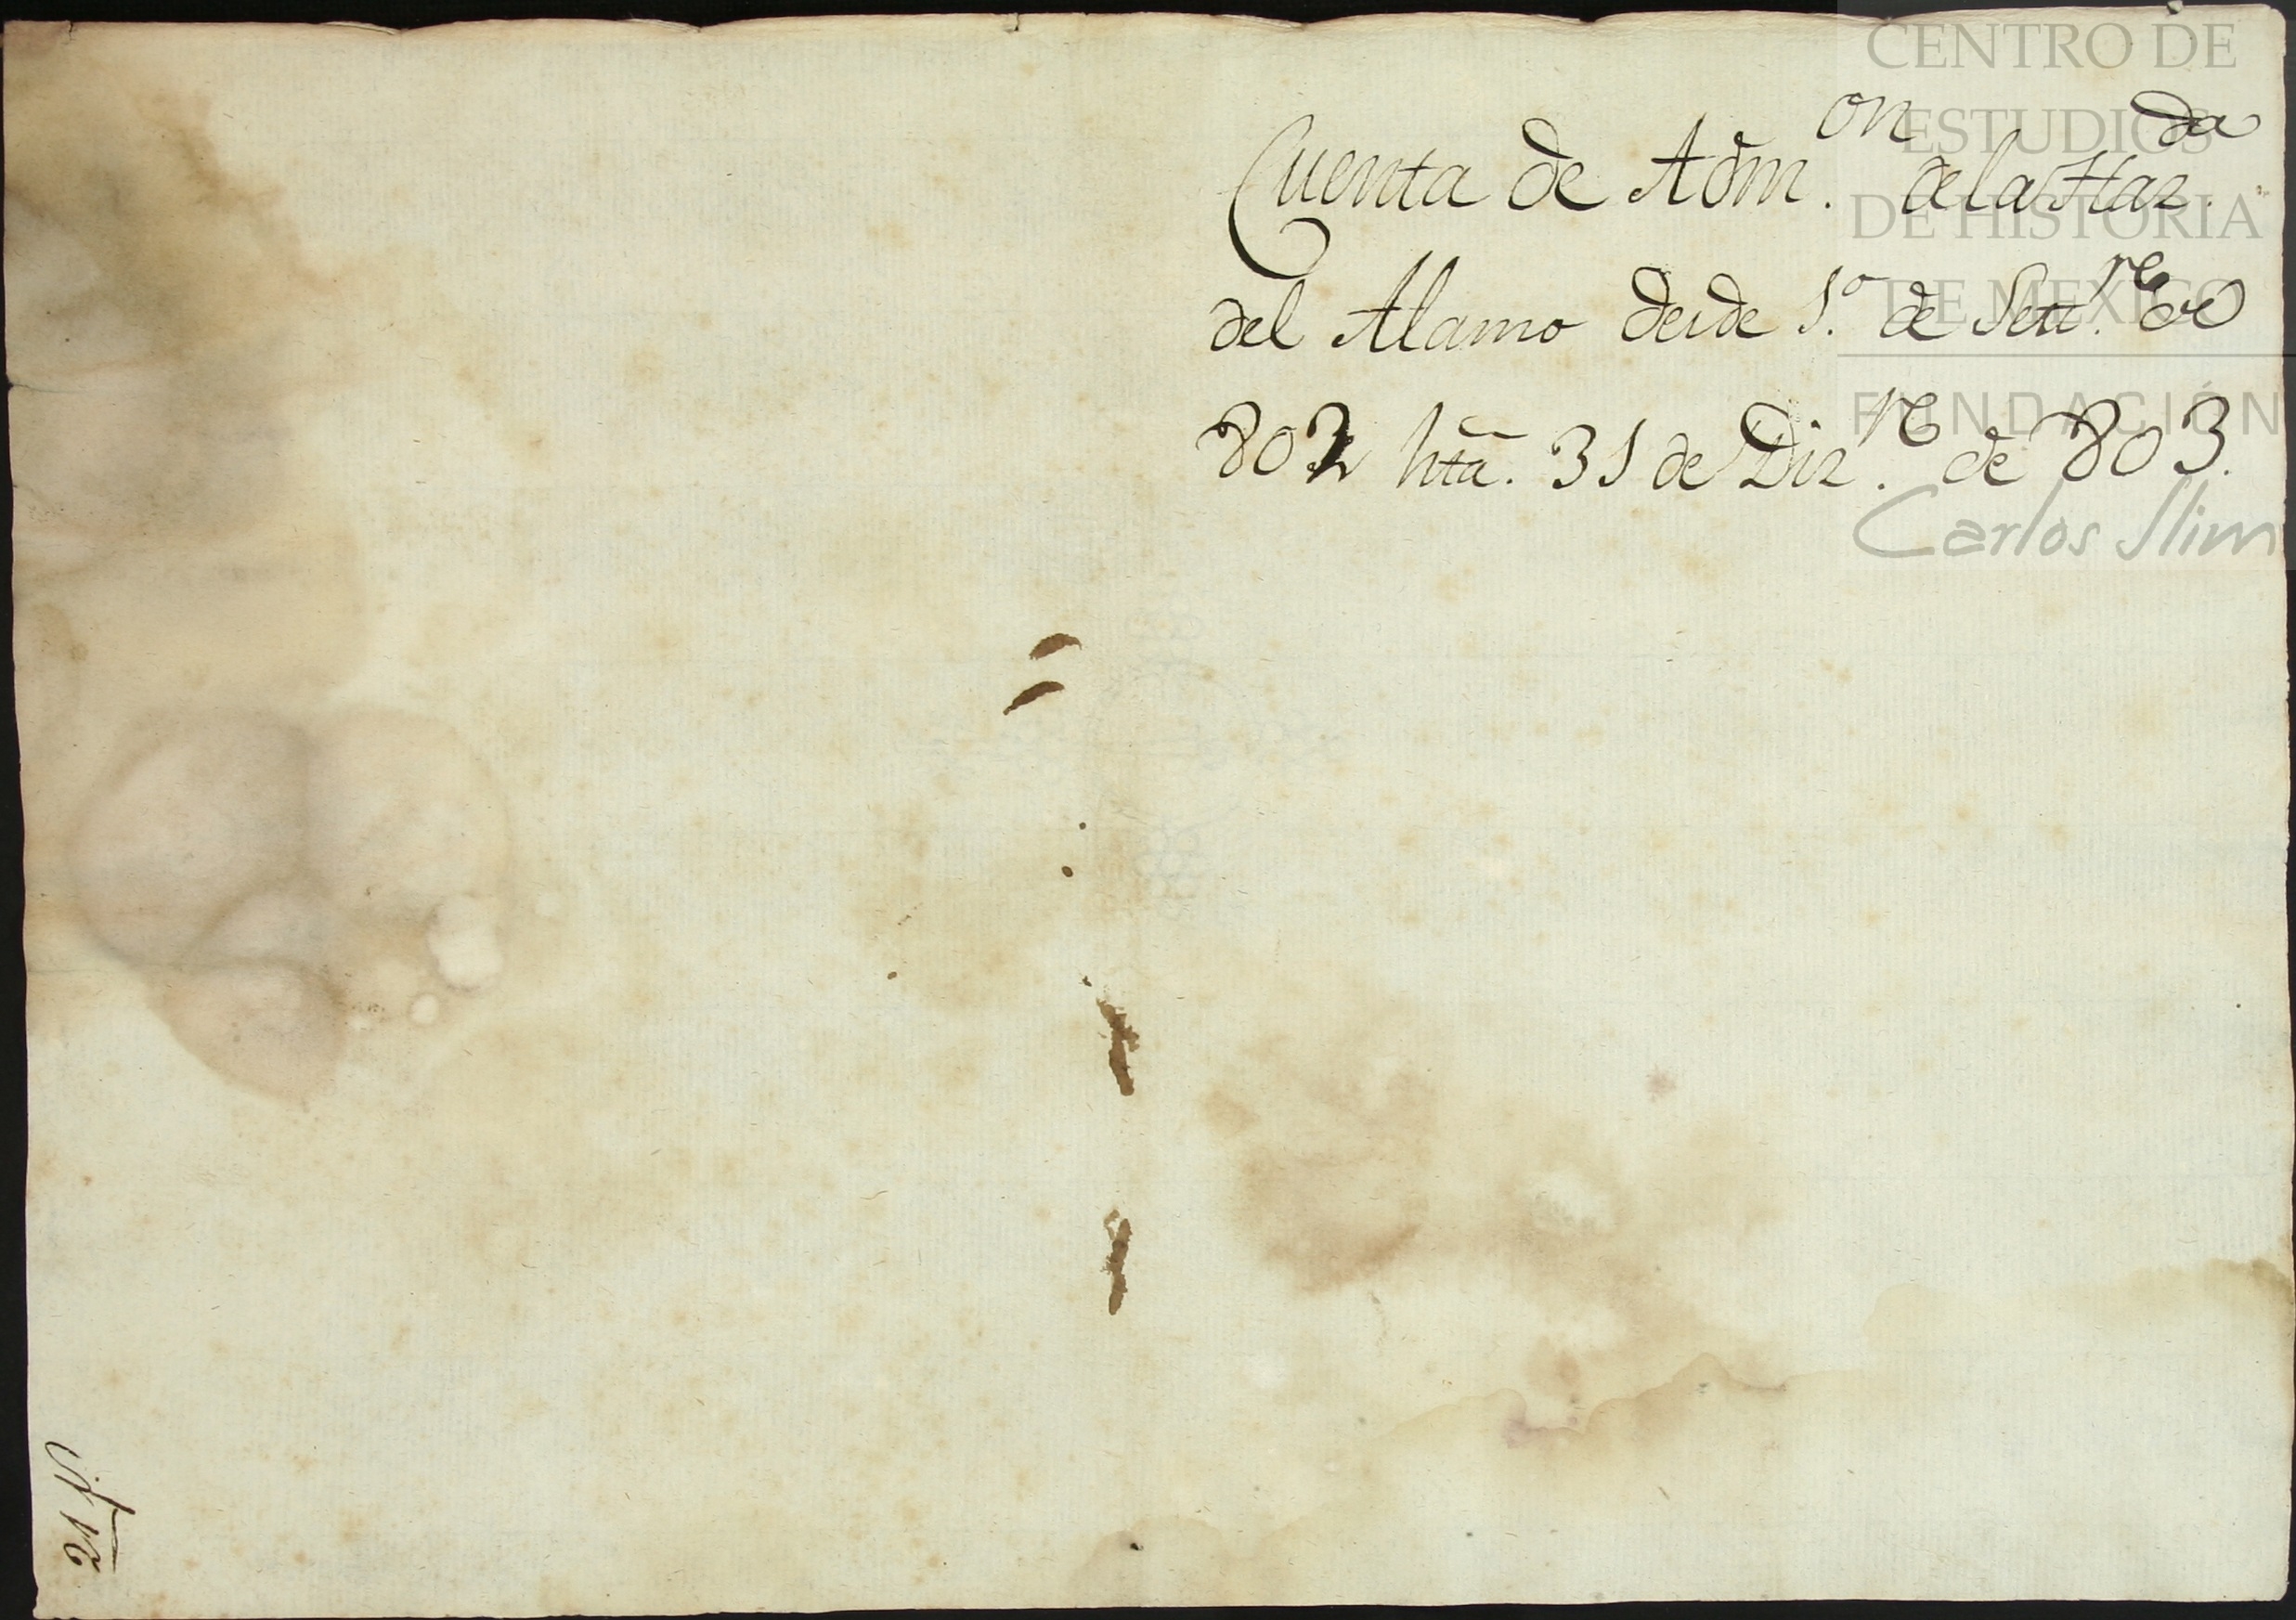 Cuenta de Adm.on de la Haz.da
del Alamo desde 1.o de Sett.re de
802 htã. 31 de Diz.re de 803.
CENTRO DE
ESTUDIOS
DE HISTORIA
DE MEXICO
FUNDACIÓN
Carlos Slim